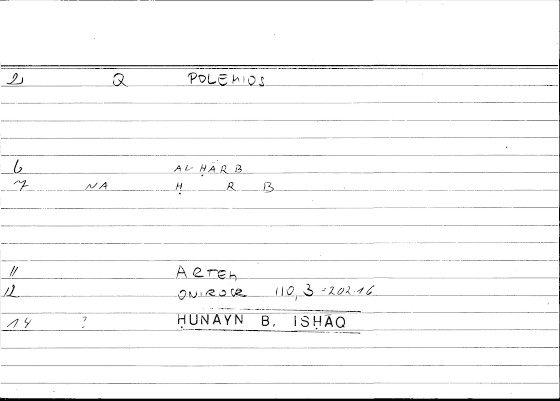 2 Q POLEMIOS
6 AL-ḤARB
7 NA Ḥ R B
11 ARTEM
12 ONIROCR 110,3 = 202.16
14 ? ḤUNAYN B. ISḤĀQ